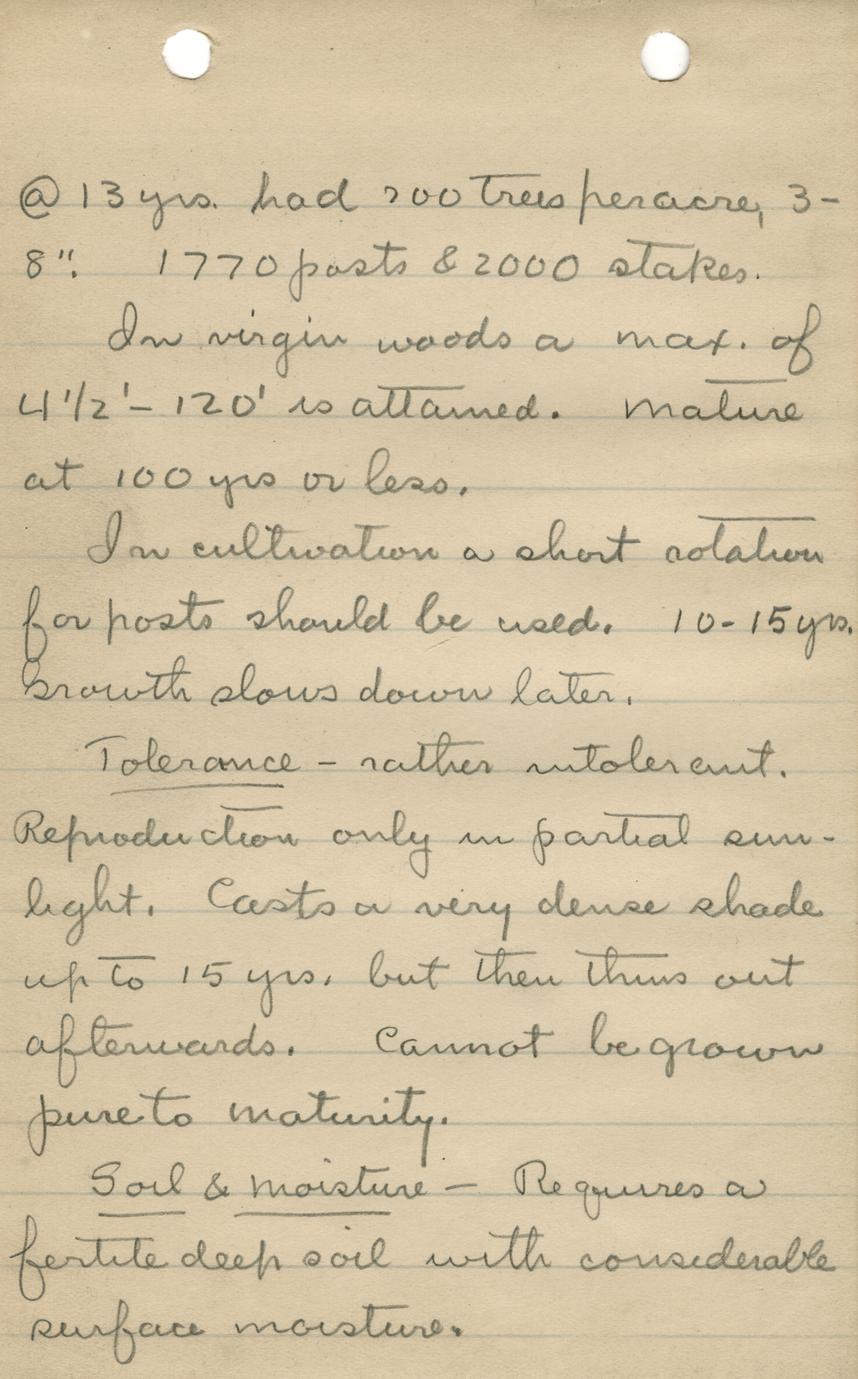 @ 13 yrs. had 700 trees per acre, 3-
8". 1770 posts & 2000 stakes.
In virgin woods a max. of
4 1/2' - 120' is attained. Mature
at 100 yrs or less.
In cultivation a short rotation
for posts should be used. 10-15 yrs.
Growth slows down later.
Tolerance - rather intolerant.
Reproduction only in partial sun-
light. Casts a very dense shade
up to 15 yrs. but then thins out
afterwards. Cannot be grown
pure to maturity.
Soil & Moisture - Requires a
fertile deep soil with considerable
surface moisture.